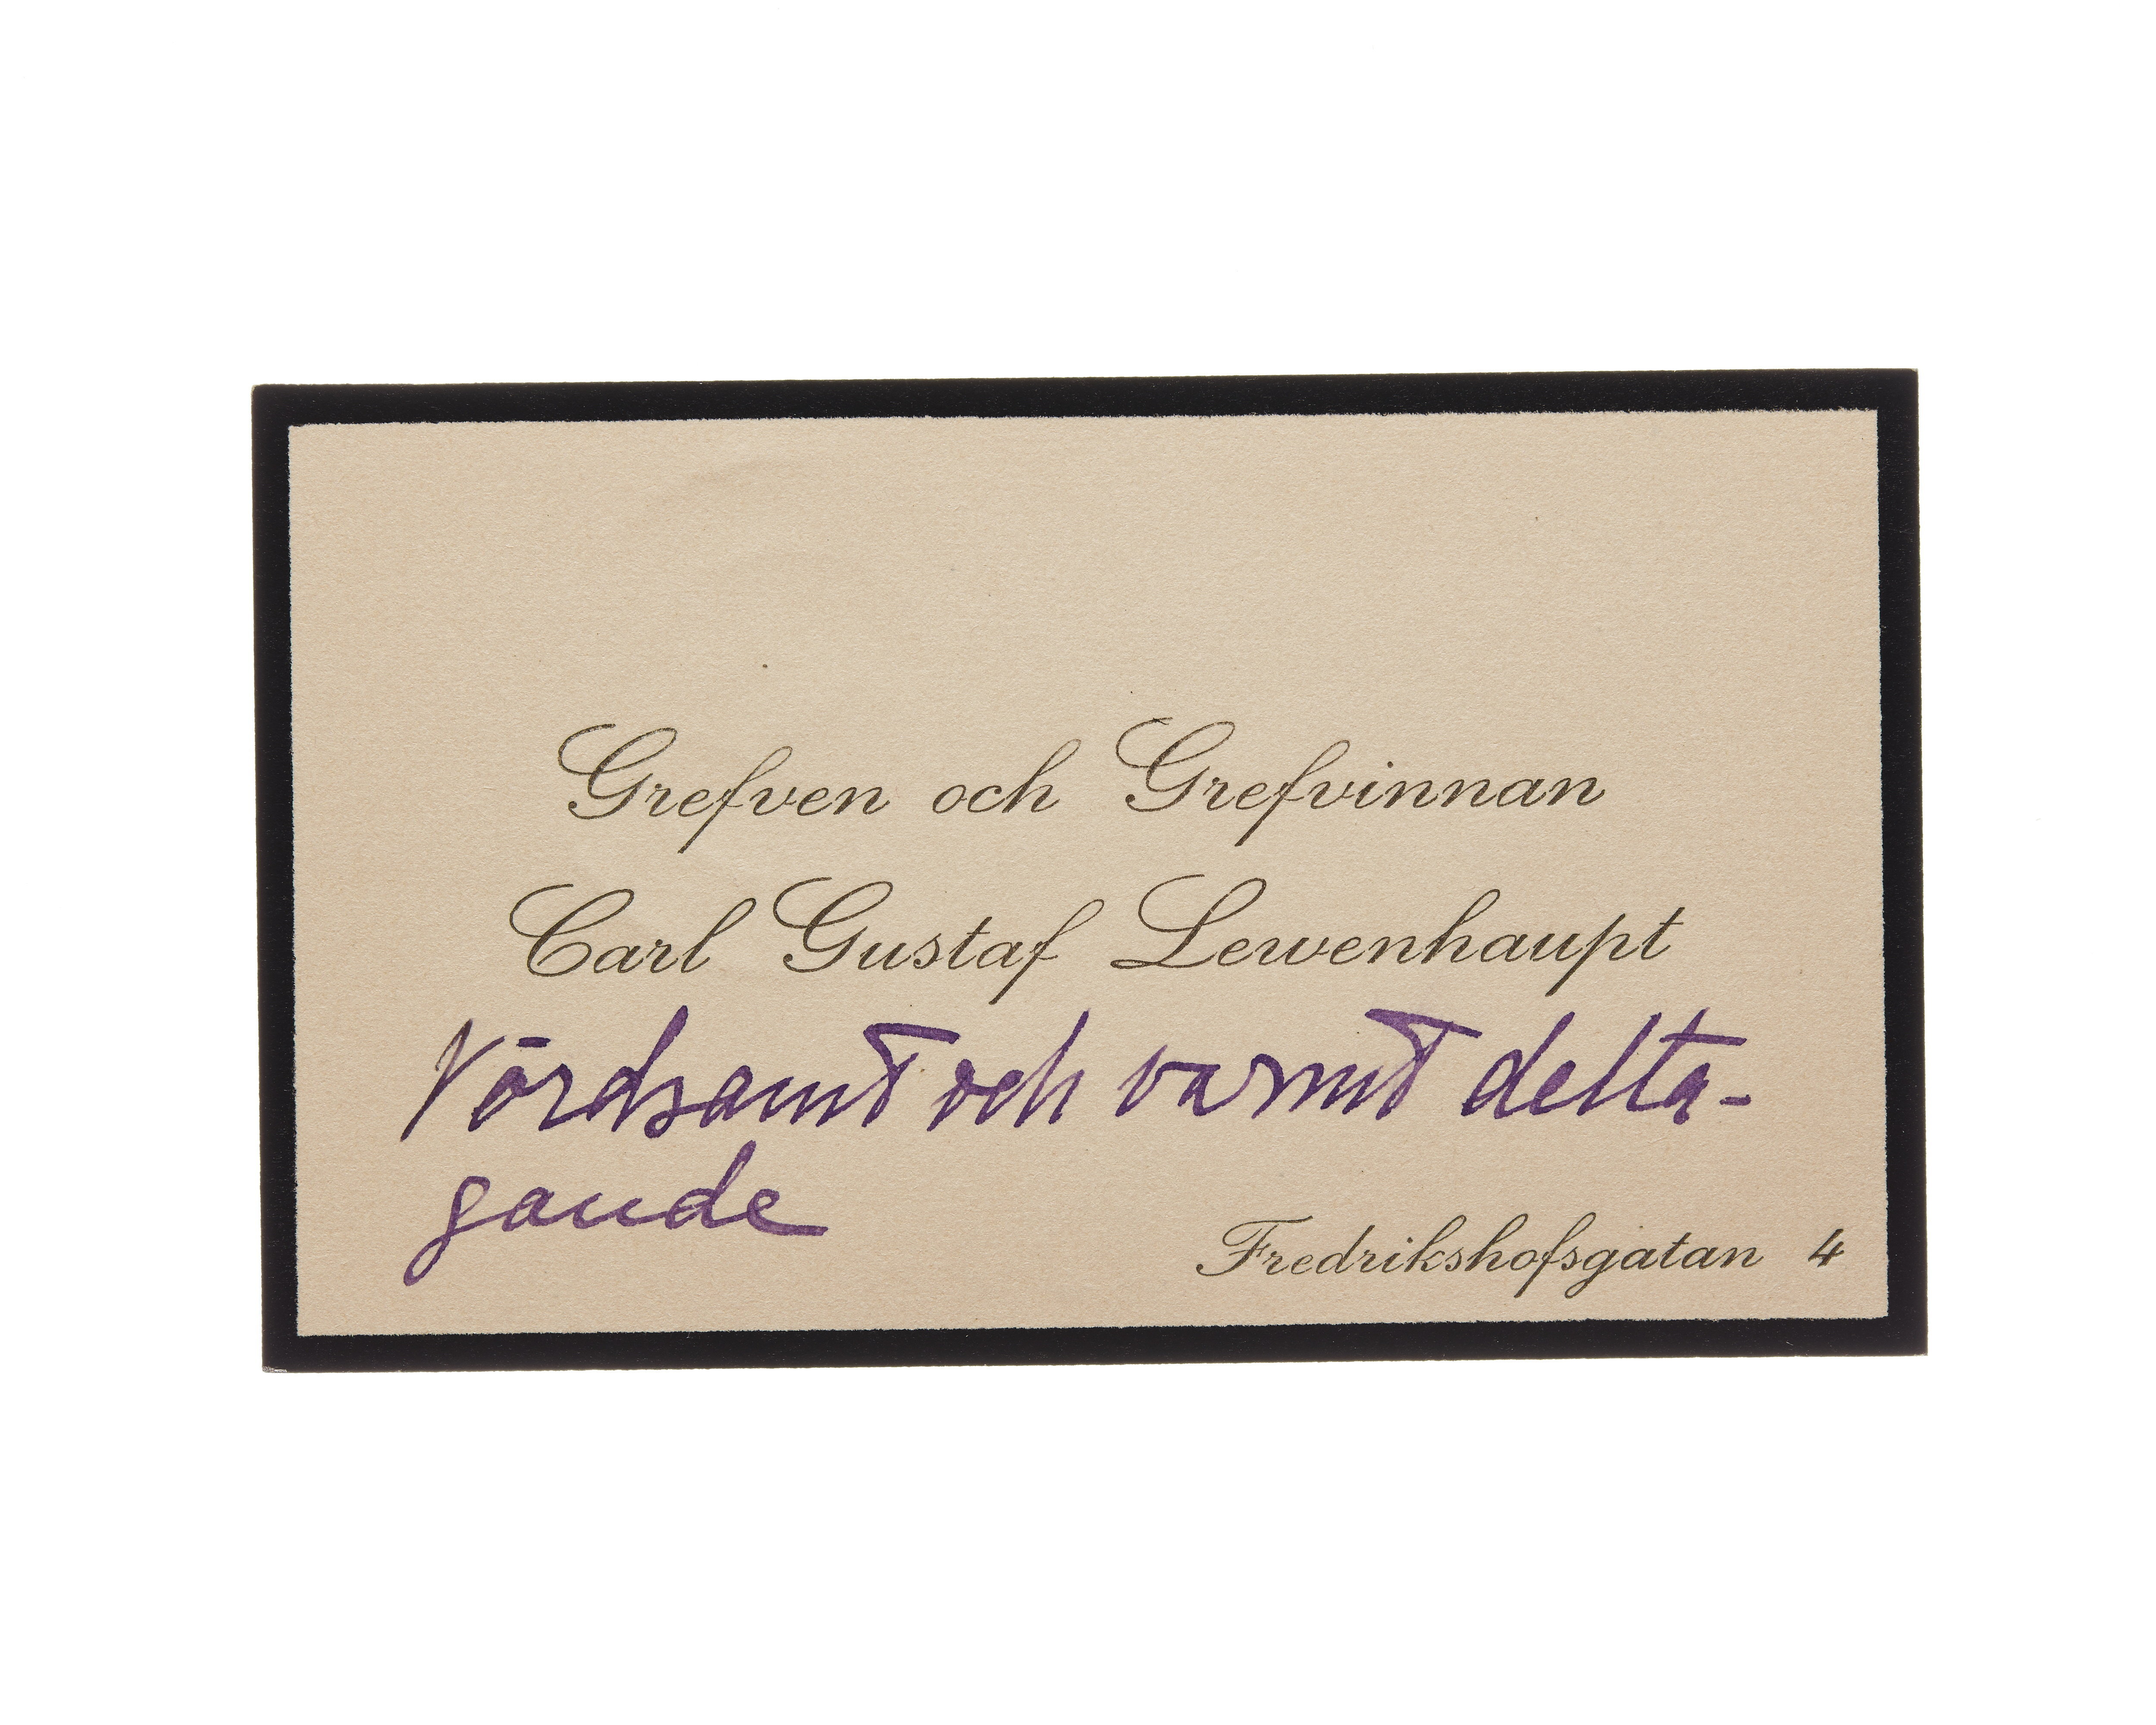 Grefven och Grefvinnan
Carl Gustaf Lewenhaupt
Vördsamt och varmt delta-
gande
Fredrikshofsgatan 4